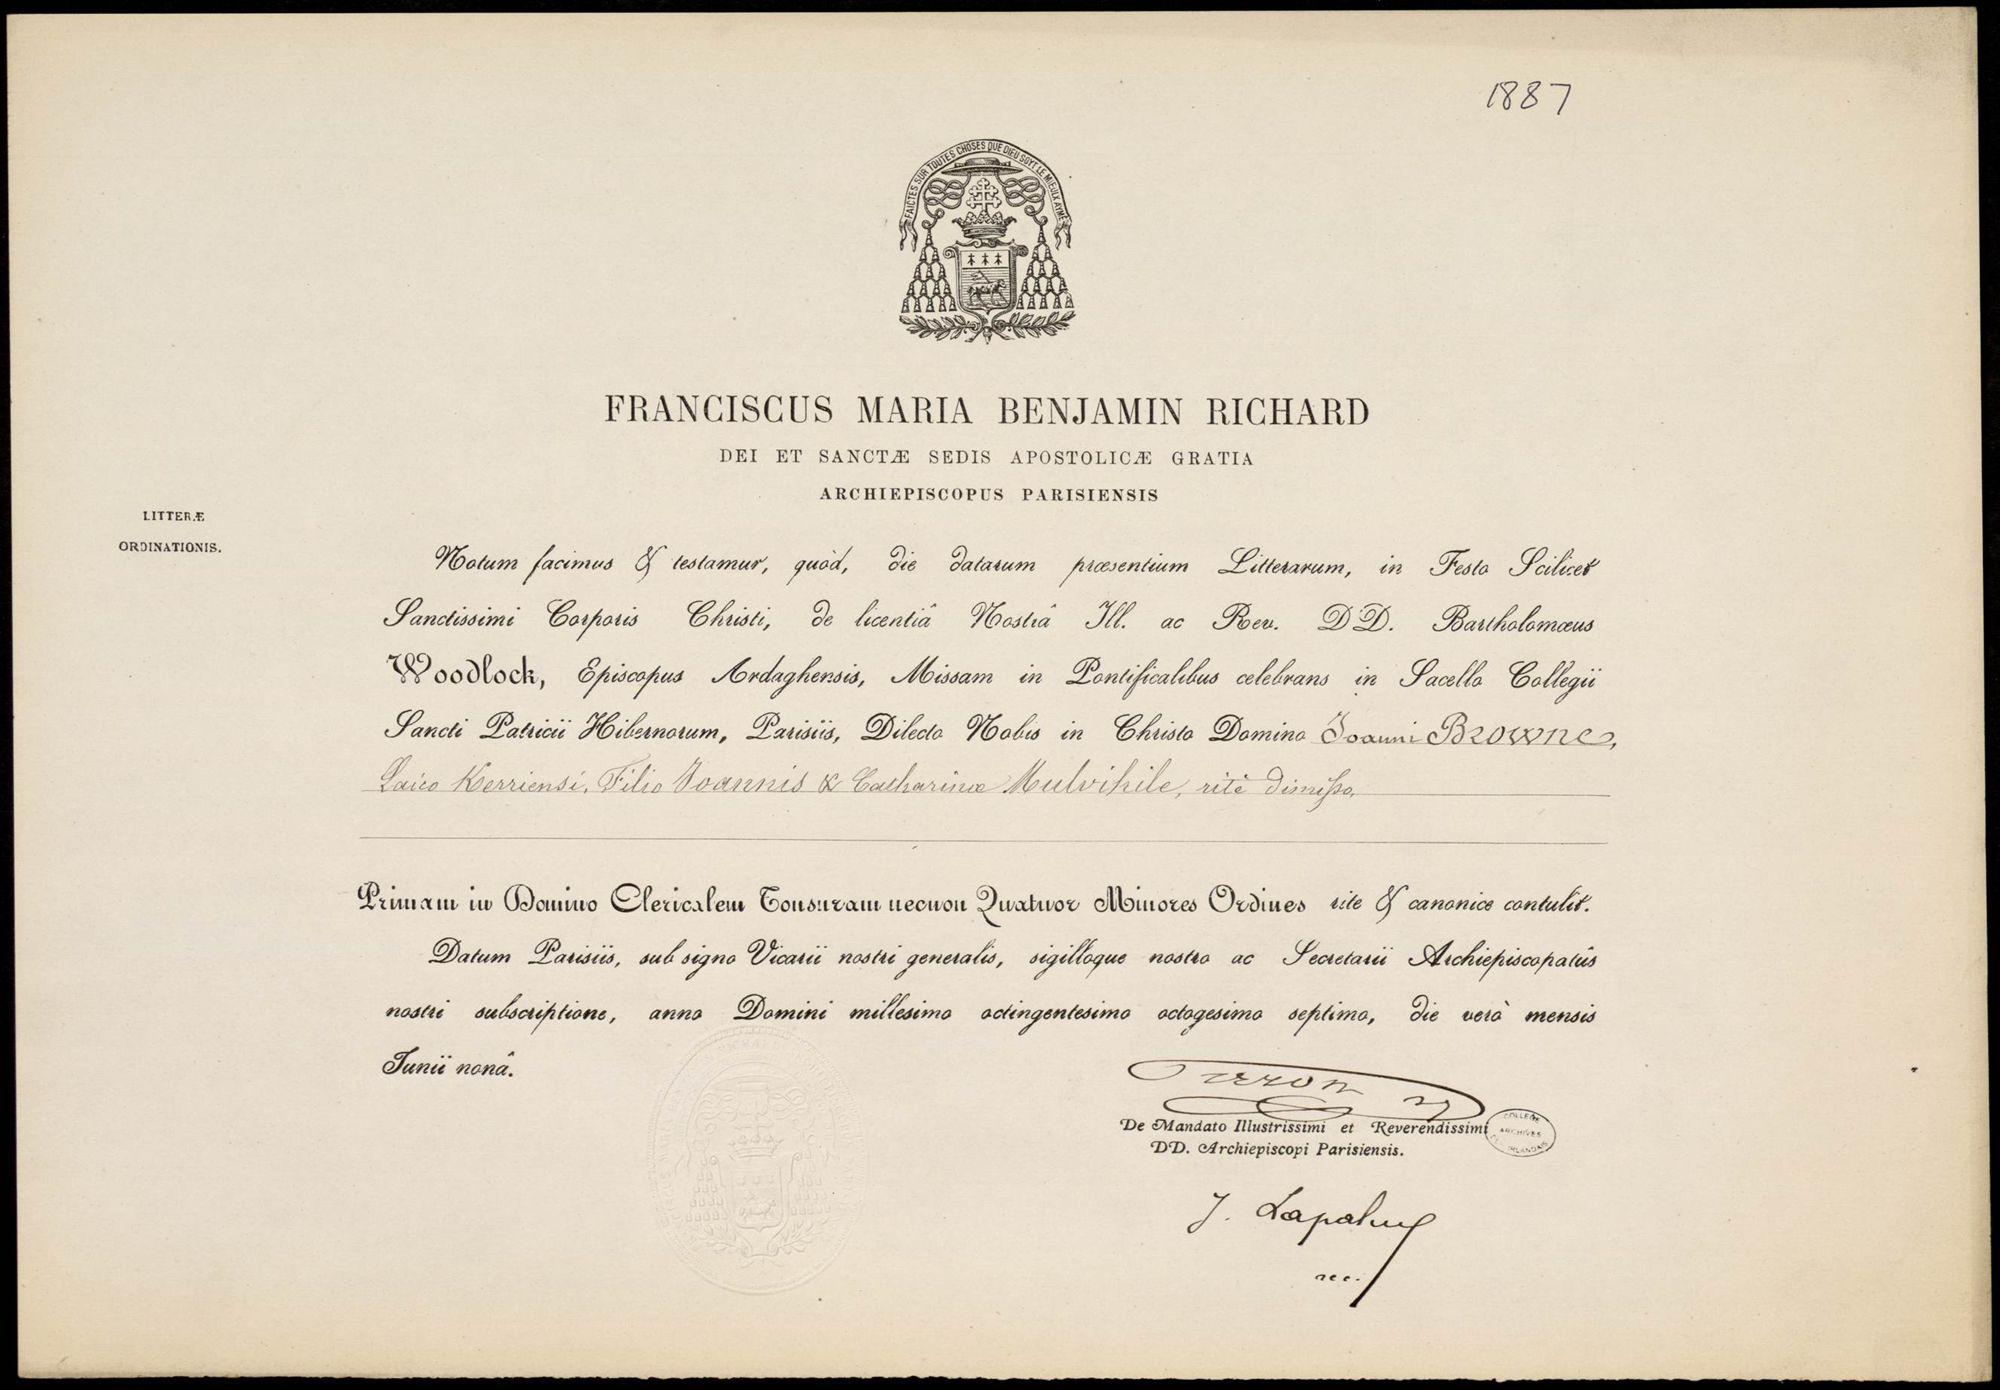 1887
FAICTES SUR TOUTES CHOSES QUE DIEU SOYT LE MIEULX AYMÉ
FRANCISCUS MARIA BENJAMIN RICHARD
DEI ET SANCTÆ SEDIS APOSTOLICÆ GRATIA
ARCHIEPISCOPUS PARISIENSIS
LITTERÆ
ORDINATIONIS.
Notum facimus & testamur, quòd, die datarum præsentium Litterarum, in Festo Scilicet
Sanctissimi Corporis Christi, de licentiâ Nostrâ Ill. ac Rev. DD. Bartholomæus
Woodlock, Episcopus Ardaghensis, Missam in Pontificalibus celebrans in Sacello Collegii
Sancti Patricii Hibernorum, Parisiis, Dilecto Nobis in Christo Domino Joanni Browne,
Laico Kerriensi, Filio Joannis & Catharinæ Mulvihile, ritè dimisso,
Primam in Domino Clericalem Tonsuram necnon Quatuor Minores Ordines rite & canonice contulit.
Datum Parisiis, sub signo Vicarii nostri generalis, sigilloque nostro ac Secretarii Archiepiscopatûs
nostri subscriptione, anno Domini millesimo octingentesimo octogesimo septimo, die verò mensis
Junii nonâ.
De Mandato Illustrissimi et Reverendissimi
DD. Archiepiscopi Parisiensis.
COLLEGE
ARCHIVES
IRLANDAIS
J.